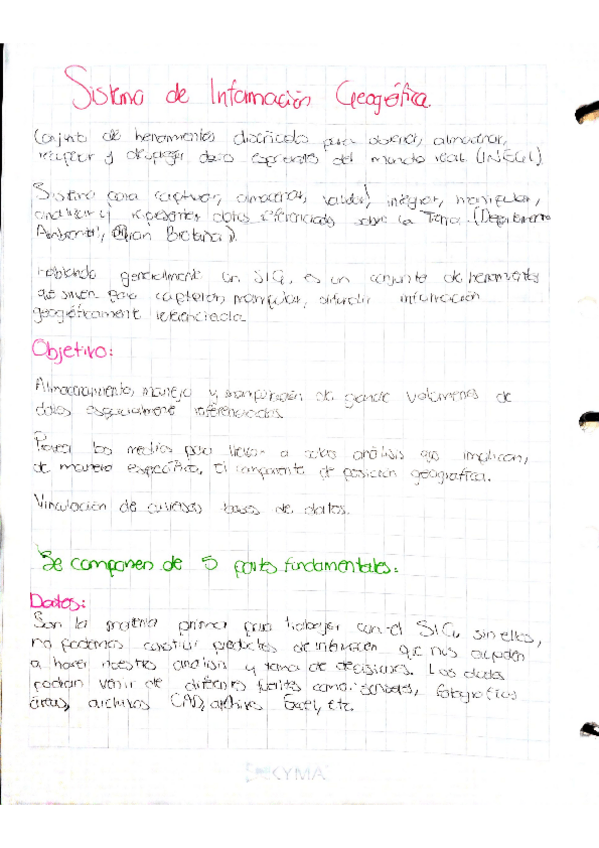 Sistema de Información Geográfica.
Conjunto de herramientas diseñadas para obtener, almacenar,
recuperar y desplegar datos espaciales del mundo real. (INEGI)
Sistema para capturar, almacenar, validar, integrar, manipular,
analizar y representar datos referenciados sobre la Tierra. (Departamento
Ambiental, Gran Bretaña).
Hablando generalmente un SIG, es un conjunto de herramientas
que sirven para capturar, manipular, difundir información
geográficamente referenciada.
Objetivo:
Almacenamiento, manejo y manipulación de grande volúmenes de
datos espacialmente referenciados.
Proveer los medios para llevar a cabo análisis que implican,
de manera específica, el componente de posición geográfica.
Vinculación de diversas bases de datos.
Se componen de 5 partes fundamentales:
Datos:
Son la materia prima para trabajar con el SIG, sin ellos,
no podemos construir productos de información que nos ayuden
a hacer nuestros análisis y toma de decisiones. Los datos
podrían venir de diferentes fuentes como: sensores, fotografías
aéreas, archivos CAD, archivos Excel, etc.
KYMA